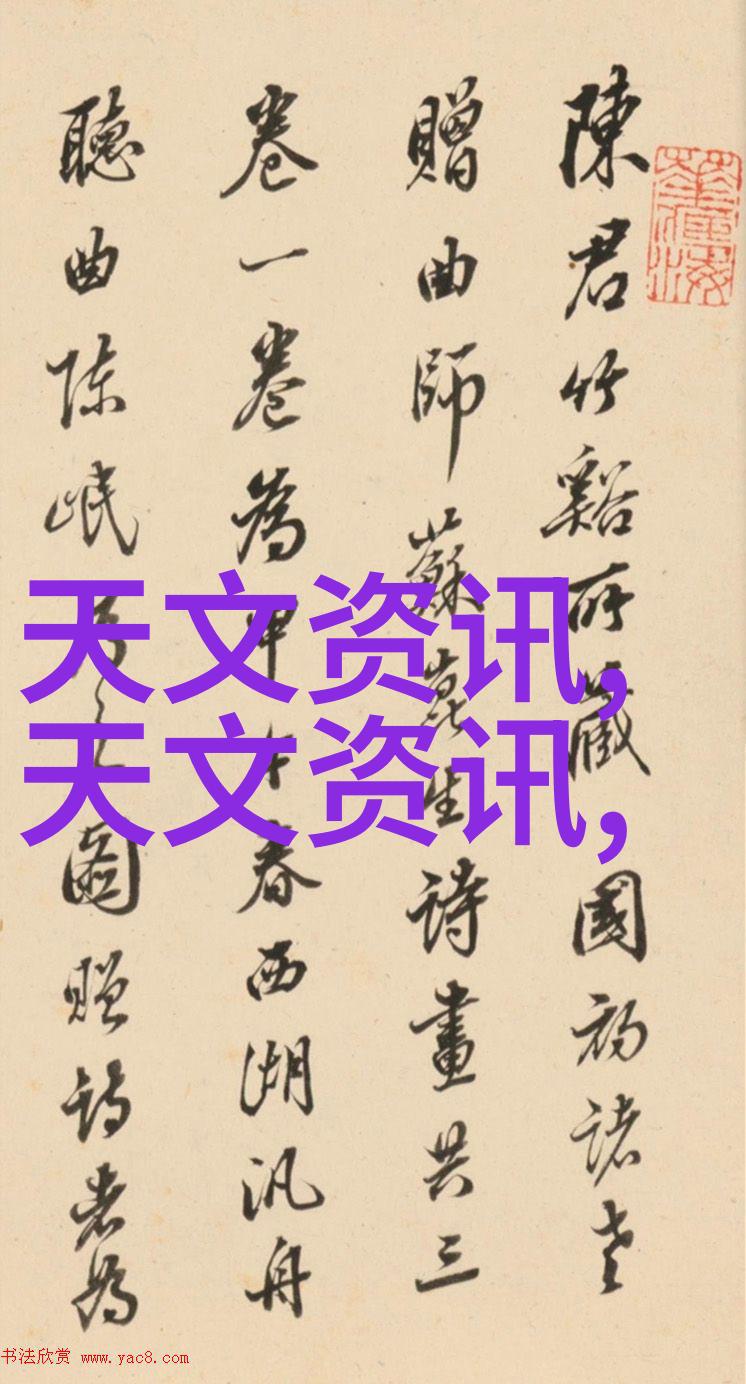 陳君竹谿所藏國初諸老
贈曲師蘇崑生詩畫共三
卷一卷為甲午春西湖汎舟
聽曲陈岷
圖贈詩者為
天文资讯,
天文资讯,
书法欣赏 www.yac8.com